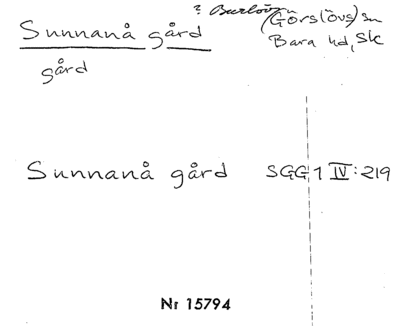 ? Burlöv
Sunnanå gård (Görslövs) sn
gård Bara hd, Sk
Sunnanå gård SGG 1 IV:219
Nr 15794